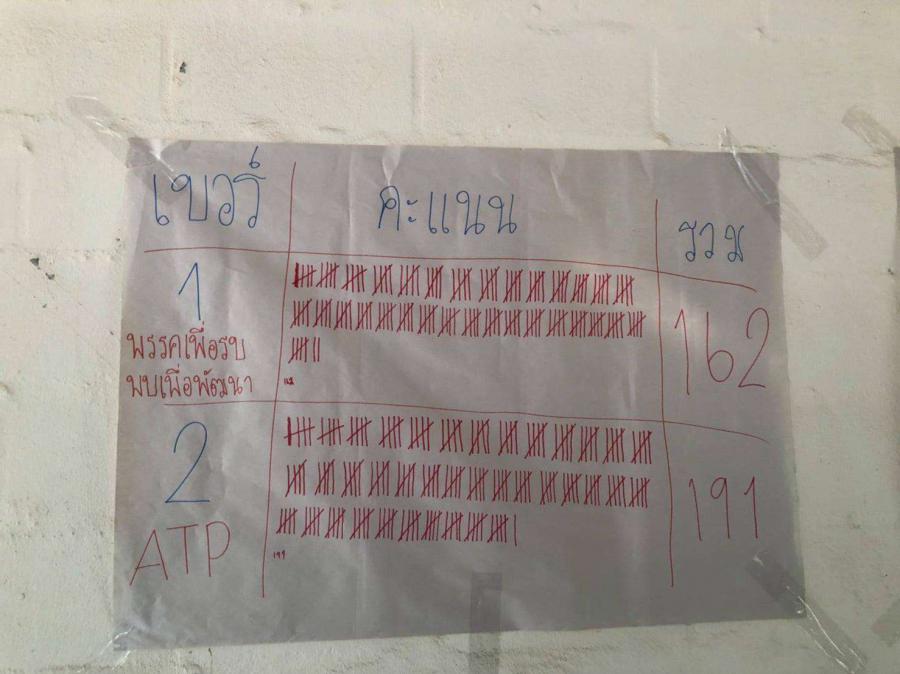 เบอร์
คะแนน
รวม
1
พรรคเพื่อรบ
พบเพื่อพัฒนา
162
162
2
ATP
191
191